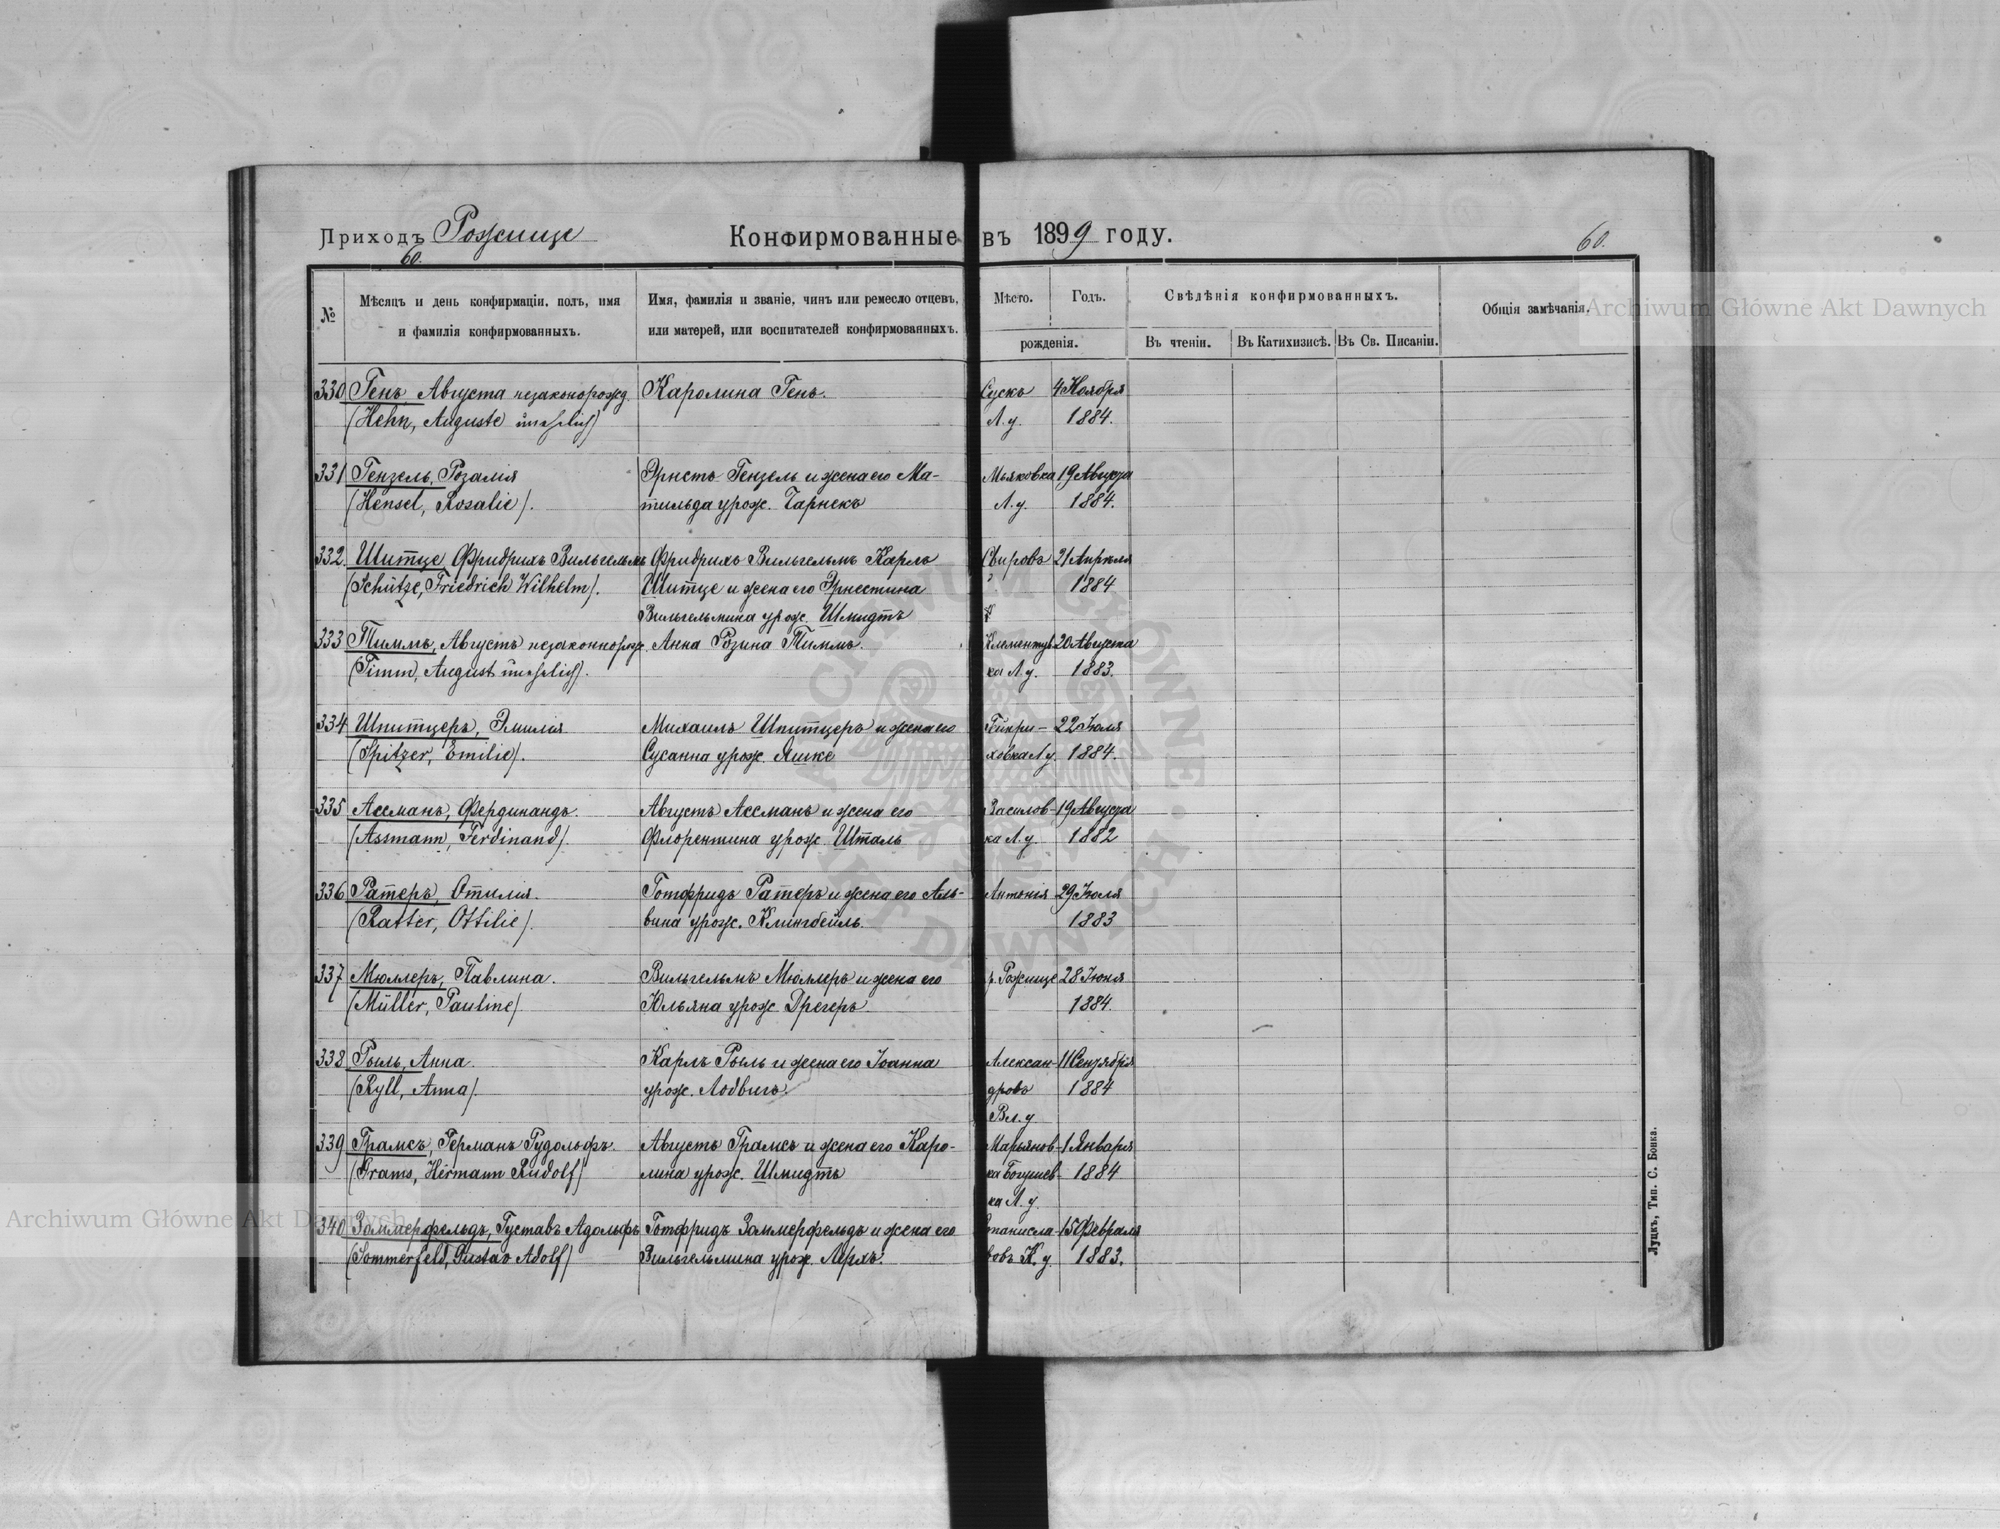 Приходъ Рожище
Конфирмованные въ 1899 году.
60.
60.
№
Мѣсяцъ и день конфирмаціи, полъ, имя
и фамилія конфирмованныхъ.
Имя, фамилія и званіе, чинъ или ремесло отцевъ,
или матерей, или воспитателей конфирмованныхъ.
Мѣсто.
Годъ.
рожденія.
Свѣдѣнія конфирмованныхъ.
Въ чтеніи.
Въ Катихизисѣ.
Въ Св. Писаніи.
Общія замѣчанія.
330 Генъ, Августа незаконорожд. Каролина Генъ. Сускъ 4 Ноября
(Hehn, Auguste unehelich) Л.у. 1884.
331 Гензель, Розалія Эрнстъ Гензель и жена его Ма- 19 Августа
(Hensel, Rosalie). тильда урож. Чарнекъ Л.у. 1884.
332. Шитце Фридрихъ Вильгельмъ Фридрихъ Вильгельмъ Карлъ Свировъ 21 Апрѣля
(Schütze, Friedrich Wilhelm). Шитце и жена его Эрнестина 1884
Вильгельмина урож. Шмидтъ
333 Тиммъ, Августъ незаконнорж. Анна Розина Тиммъ. Клементув- 20 Августа
(Timm, August unehelich). ка Л.у. 1883.
334 Шпитцеръ, Эмилія Михаилъ Шпитцеръ и жена его 22 Іюля
(Spitzer, Emilie). Сусанна урож. Яшке ховка Л у. 1884.
335 Ассманъ, Фердинандъ. Августъ Ассманъ и жена его Василов- 19 Августа
(Assmann, Ferdinand). Флорентина урож. Шталь ка Л.у. 1882
336 Ратеръ, Отилія. Готфридъ Ратеръ и жена его Аль- Антонія 29 Іюля
(Ratter, Ottilie). вина урож. Клингбейль. 1883
337 Мюллеръ, Павлина. Вильгельмъ Мюллеръ и жена его Рожище 28 Іюня
(Müller, Pauline). Юльяна урож. Дрегеръ. 1884.
338 Рыль, Анна. Карлъ Рыль и жена его Іоанна Алексан- 11 Сентября
(Ryll, Anna). урож. Лодвигъ. дрово 1884
Вл.у
339 Грамсъ, Германъ Рудольфъ. Августъ Грамсъ и жена его Каро- Марьянов- 1 Января
(Grams, Hermann Rudolf) лина урож. Шмидтъ ка Богушев- 1884
ка Л.у.
340 Зоммерфельдъ, Густавъ Адольфъ Готфридъ Заммерфельдъ и жена его Станисла- 15 Февраля
(Sommerfeld, Gustav Adolf) Вильгельмина урож. Лерхъ. вовъ К.у. 1883.
Луцкъ, Тип. С. Бонка.
Archiwum Główne Akt Dawnych
Archiwum Główne Akt Dawnych
ARCHIWUM GŁÓWNE AKT DAWNYCH